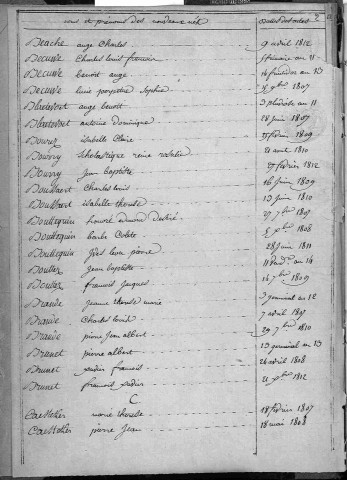 noms et prénoms des nouveaux nés dates des actes 2
Beache ange Charles 9 avril 1812
Becuwe Charles Louis francois frimaire an 11
Becuwe benoit ange 14 fructidor an 13
Becuwe Sophie 9bre 1807
ange benoit 3 pluviôse an 11
antoine Dominique 18 juin 1807
isabelle Claire 25 fevrier 1809
Bourry Scholastique reine rosalie 21 avril 1810
Bourry Jean baptiste 27 fevrier 1812
Boutsaert Charles Louis 16 juin 1809
Boutsaert isabelle therese 13 juin 1810
Bouttequin edmond desiré 27 7bre 1807
Bouttequin barbe Colette xbre 1808
Bouttequin pierre 28 juin 1811
Boutez Jean baptiste 11 an 14
Boutez francois Jacques 14 7bre 1809
Brande jeanne therese marie germinal an 12
Brande Charles Louis 7 avril 1807
Brande pierre Jean albert 29 7bre 1810
Brunet pierre albert 13 germinal an 13
Brunet francois 26 avril 1808
Brunet francois 21 xbre 1812
C
marie therese 18 fevrier 1807
pierre Jean 18 mai 1808